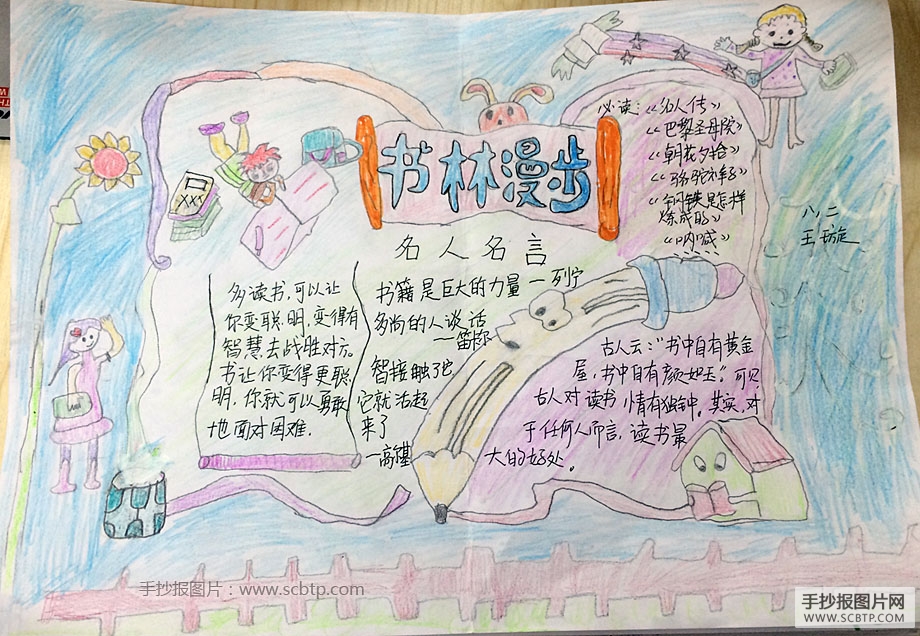 书林漫步
必读:《名人传》
《巴黎圣母院》
《朝花夕拾》
《骆驼祥子》
《钢铁是怎样
炼成的》
《呐喊》
八,二
王璇
名人名言
多读书,可以让
你变聪明,变得有
智慧去战胜对方。
书让你变得更聪
明,你就可以勇敢
地面对困难.
书籍是巨大的力量 一列宁
多尚的人谈话
一笛
智接触了它
它就活起
来了
一高基
古人云:“书中自有黄金
屋,书中自有颜如玉”。可见
古人对读书情有独钟。其实,对
于任何人而言,读书最
大的好处。
手抄报图片:www.scbtp.com
手抄报图片网
WWW.SCBTP.COM